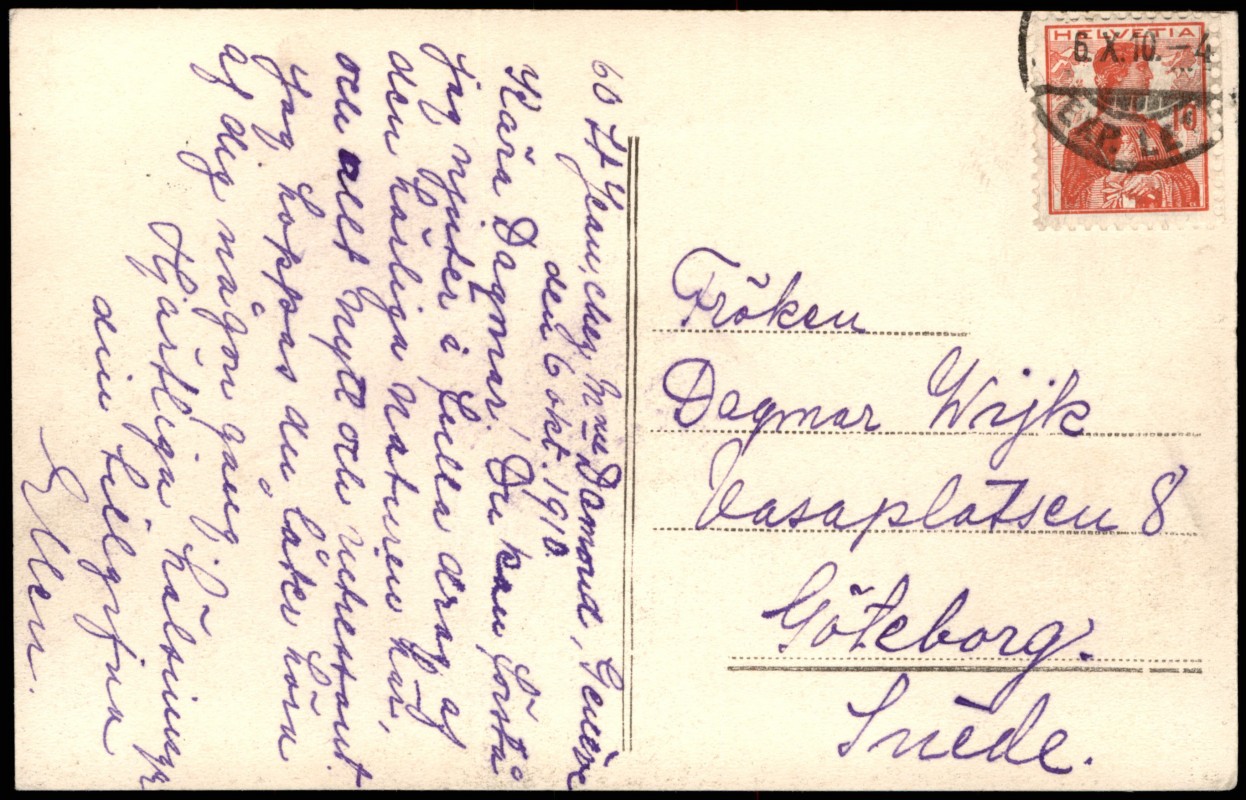 60 St Jean, chez Mme Damond, Genève
den 6 okt. 1910.
Kära Dagmar! Du kan förstå
jag njuter i fulla drag af
den härliga naturen här,
och allt nytt och intressant.
Jag hoppas du låter höra
af dig någon gång.
Hjärtliga hälsningar
din tillgifna
Ellen.
HELVETIA
6.X.10.-4
EXP. LE
10
Fröken
Dagmar Wijk
Vasaplatsen 8
Göteborg.
Suède.